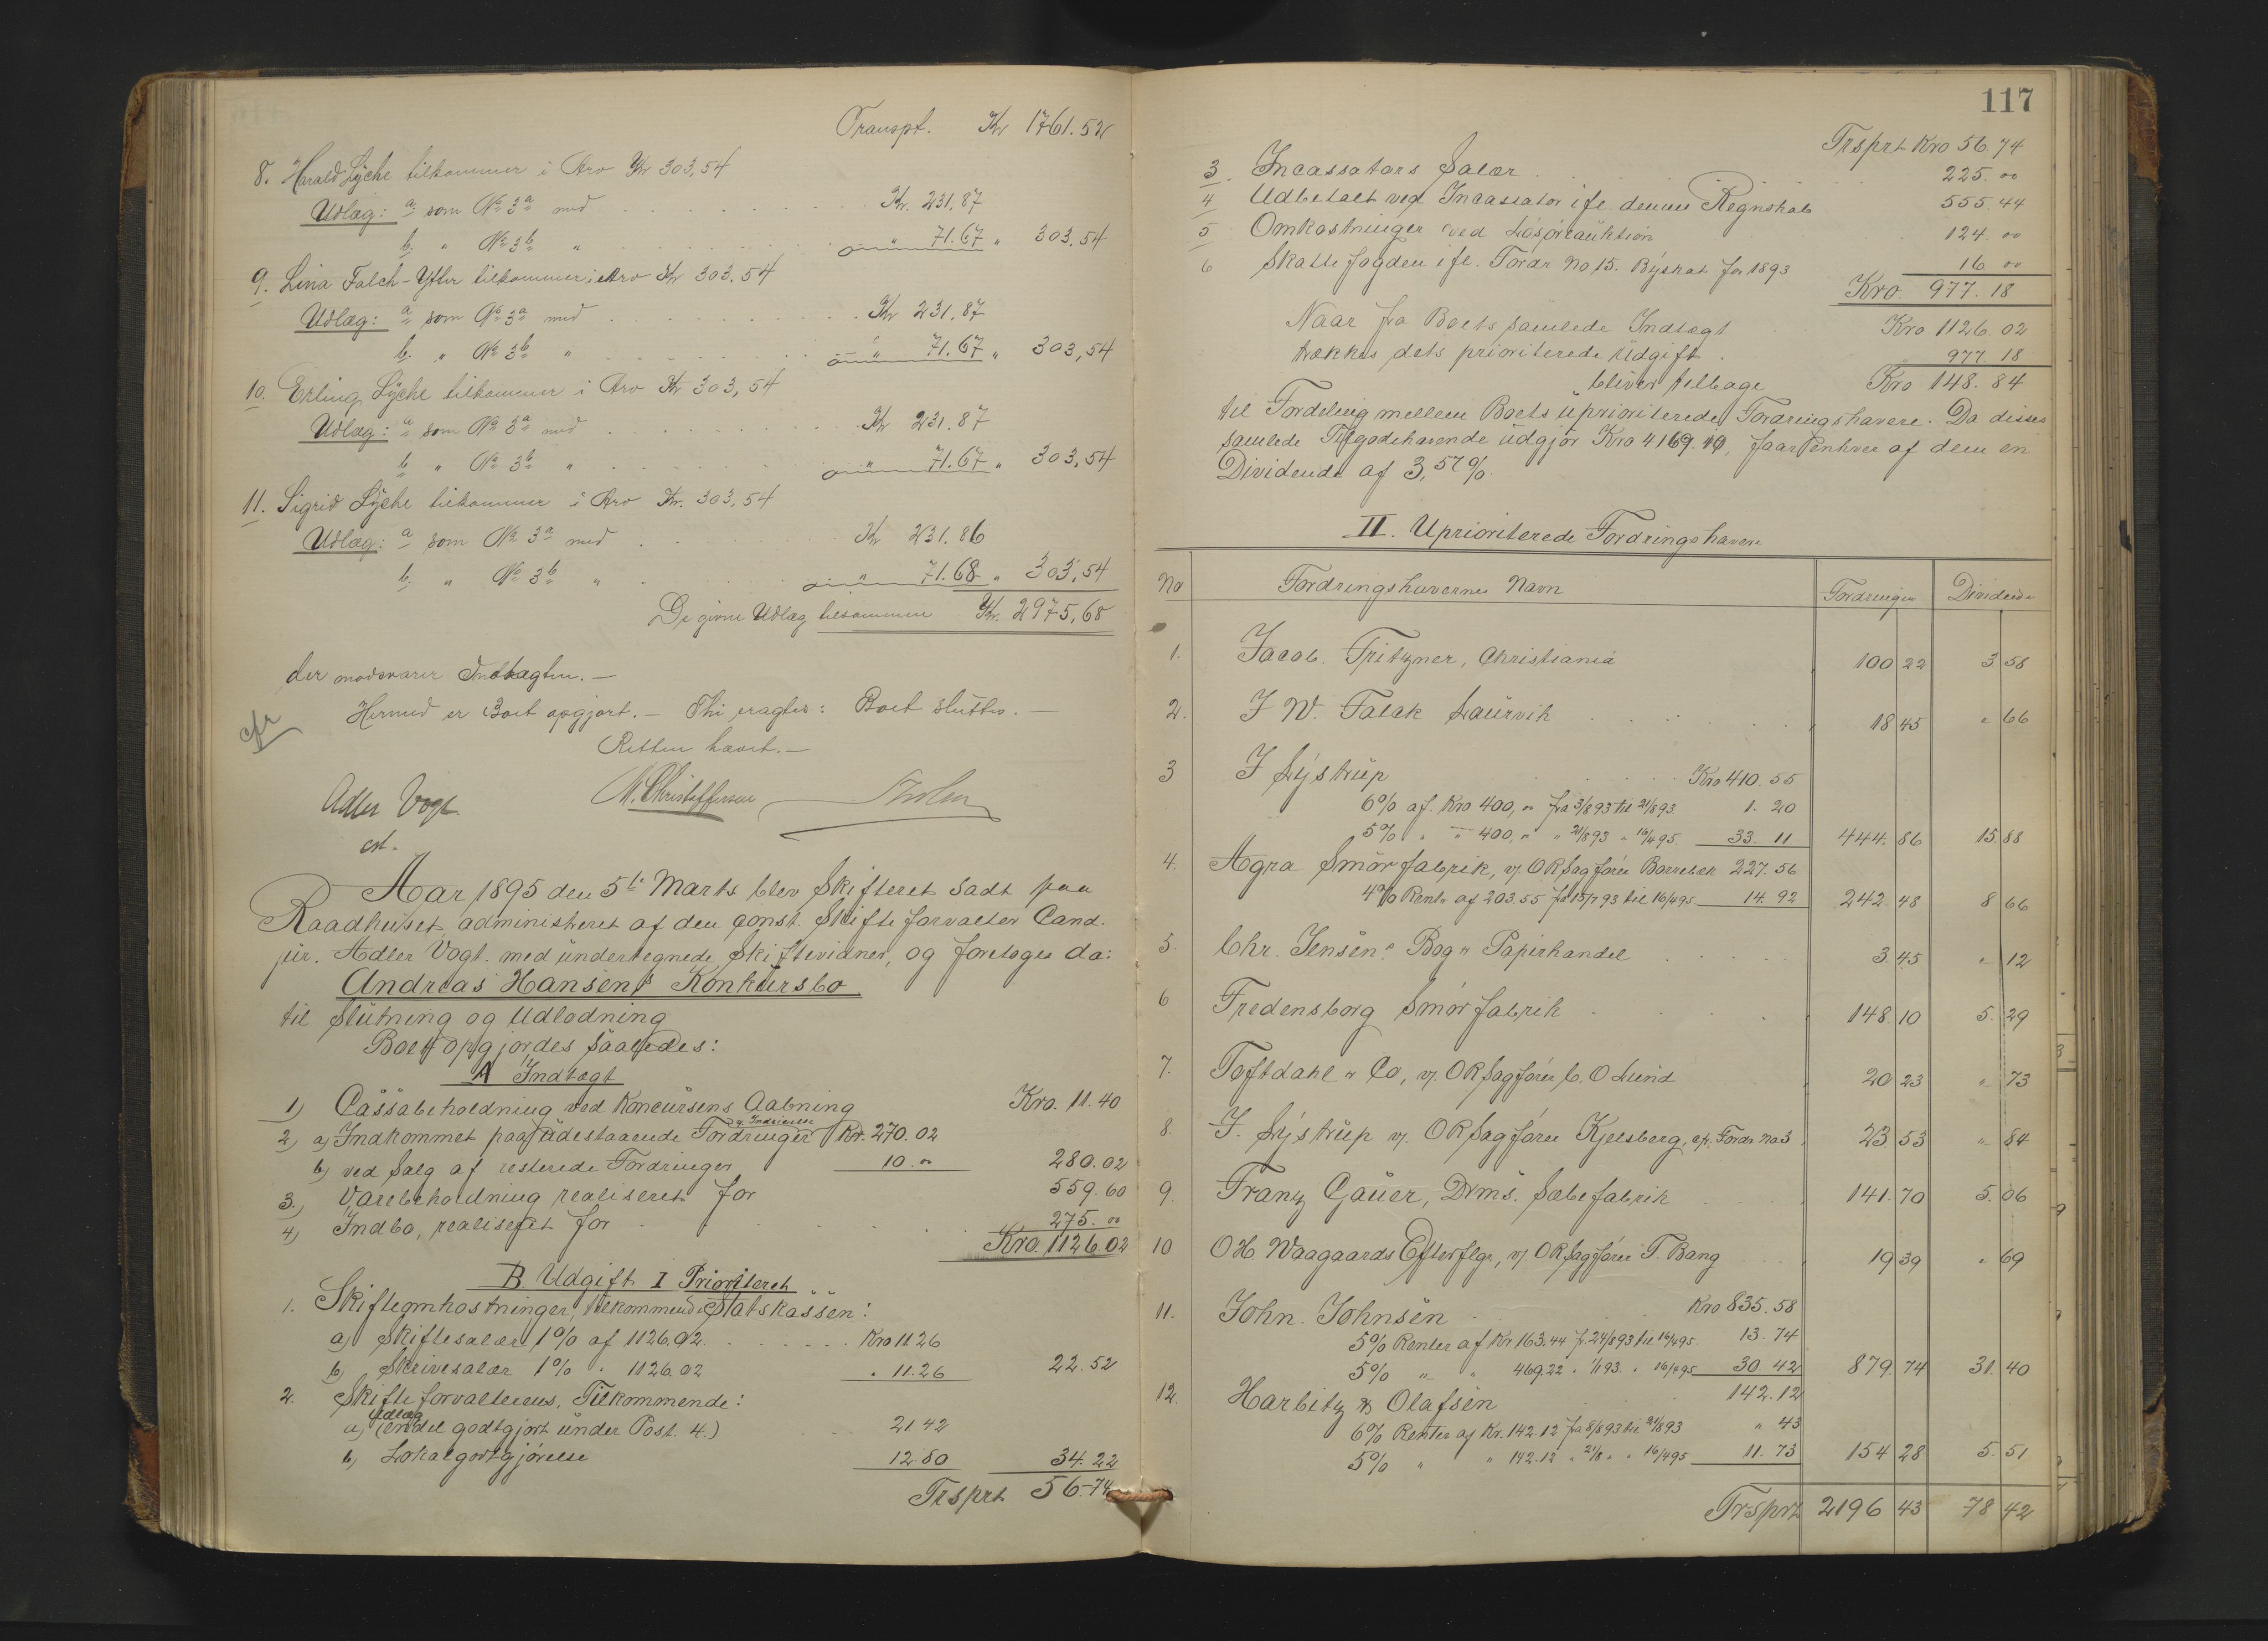 Transpt. Kr 1761.52
8. Harald Lyche tilkommer i Arv Kr 303,54
Udlæg: a som No 3a med Kr. 231.87
b. " No 3b " " 71.67 " 303,54
9. Lina Falch-Ytter tilkommer i Arv Kr 303.54
Udlæg: a som No 3a med Kr 231.87
b. " No 3b " " 71.67 " 303,54
10. Erling Lyche tilkommer i Arv Kr 303,54
Udlæg: a som No 3a med Kr 231.87
b " No 3b " " 71.67 " 303,54
11. Sigrid Lyche tilkommer i Arv Kr. 303,54
Udlæg: a som No 3a med Kr 231.86
b. " No 3b " " 71.68 " 303,54
De givne Udlæg tilsammen Kr. 2975,68
der modsvarer Indtægten.—
Hermed er Boet opgjort.— Thi eragtes: Boet sluttes.—
cfr
Retten hævet.—
Adler Vogt M. Christoffersen
cst.
Aar 1895 den 5te Marts blev Skifteret sadt paa
Raadhuset, administreret af den const. Skifteforvalter Cand.
jur. Adler Vogt med undertegnede Skiftevidner, og foretoges da:
Andreas Hansens Konkursbo
til Slutning og Udlodning
Boet opgjordes saaledes:
A Indtægt
1) Cassabeholdning ved Koncursens Aabning Kro. 11.40
2) a) Indkommet paa udestaaende Fordringer Kr. 270.02
b) ved Salg af resterede Fordringer 10.00 280.02
3.) Varebeholdning realiseret for 559.60
4) Indbo, realiseret for 275.00
Kro. 1126.02
B. Udgift I Prioriteret
1. Skifteomkostninger, tilkommende Statskassen:
a) Skiftesalær 1% af 1126.02 Kro 11.26
b) Skrivesalær 1% " 1126.02 " 11.26 22.52
2. Skifteforvalterens Tilkommende:
Udlæg
a) (endel godtgjort under Post. 4.) 21 42
b) Lokalgodtgjørelse 12.80 34.22
Trsprt 56.74
117
Trsprt Kro 56.74
3. Incassators Salær 225.00
4 Udbetalt ved Incassator ifl. dennes Regnskab 555.44
5 Omkostninger ved Løsøreauktion 124.00
6 Skattefogden ifl. Fordr No 15. Byskat for 1893 16 00
Kro. 977.18
Naar fra Boets samlede Indtægt Kro 1126.02
trækkes dets prioriterede Udgift 977.18
bliver tilbage Kro 148.84
til Fordeling mellem Boets uprioriterede Fordringshavere. Da disses
samlede Tilgodehavende udgjør Kro 4169.10, faar enhver af dem en
Dividende af 3,57%.
II. Uprioriterede Fordringshavere
No Fordringshavernes Navn Fordringen Dividende
1. Jacob. Fritzner, Christiania 100 22 3 58
2. J W. Falck Laurvik 18 45 " 66
3 J Lystrup Kro 410.55
6% af. Kro 400,00 fra 3/8 93 til 21/8 93. 1.20
5% " " 400,00 " 21/8 93 " 16/4 95. 33.11 444.86 15.88
4. Agra Smørfabrik, v/ ORSagfører Borrebæk 227.56
4% Rente af 203.55 fra 15/7 93 til 16/4 95 14.92 242.48 8 66
5. Chr. Jensens Bog & Papirhandel 3.45 " 12
6 Fredensborg Smørfabrik 148.10 5.29
7. Toftdahl & Co, v/. ORSagfører C. O Lund 20 23 " 73
8. J. Lystrup v/. ORSagfører Kjelsberg, cfr. Fordr No 3 23 53 " 84
9. Franz Gauer, Drms. Sæbefabrik 141.70 5.06
10 OH Waagaards Efterflgr, v/ ORSagfører T. Bang 19 39 " 69
11. John. Johnsen Kro 835.58
5% Renter af Kr 163.44 fr. 24/8 93 til 16/4 95. 13.74
5% " " 469.22 " 1/1 93. " 16/4 95 30.42 879.74 31.40
12. Harbitz & Olafsen 142.12
6% Renter af Kr. 142.12 fra 8/8 93 til 21/8 93 " 43
5% " " 142.12 " 21/8 " " 16/4 95 11.73 154 28 5.51
Trsprt 2196 43 78 42